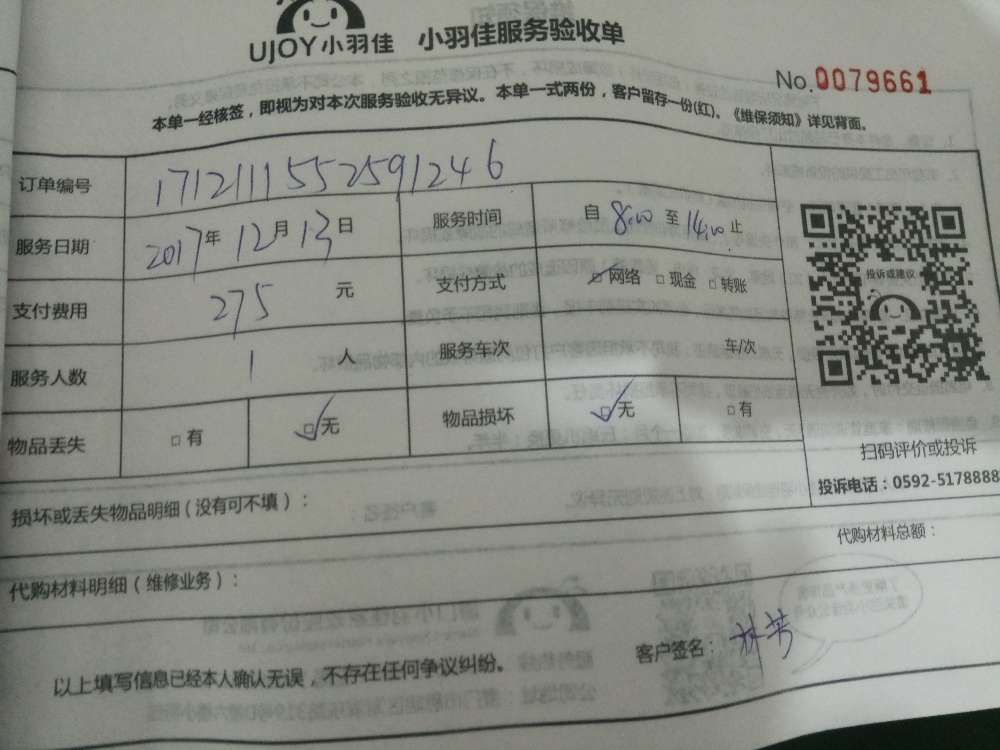 UJOY小羽佳 小羽佳服务验收单
No.0079661
本单一经核签，即视为对本次服务验收无异议。本单一式两份，客户留存一份(红)。《维保须知》详见背面。
订单编号 171211155259124 6
服务日期 2017年12月13日 服务时间 自8:00至14:00止
支付费用 275 元 支付方式 □网络 □现金 □转账
投诉或建议
服务人数 1 人 服务车次 车/次
物品丢失 □有 ☑无 物品损坏 ☑无 □有
扫码评价或投诉
投诉电话：0592-5178888
损坏或丢失物品明细（没有可不填）：
代购材料总额：
代购材料明细（维修业务）：
以上填写信息已经本人确认无误，不存在任何争议纠纷。
客户签名：林芳